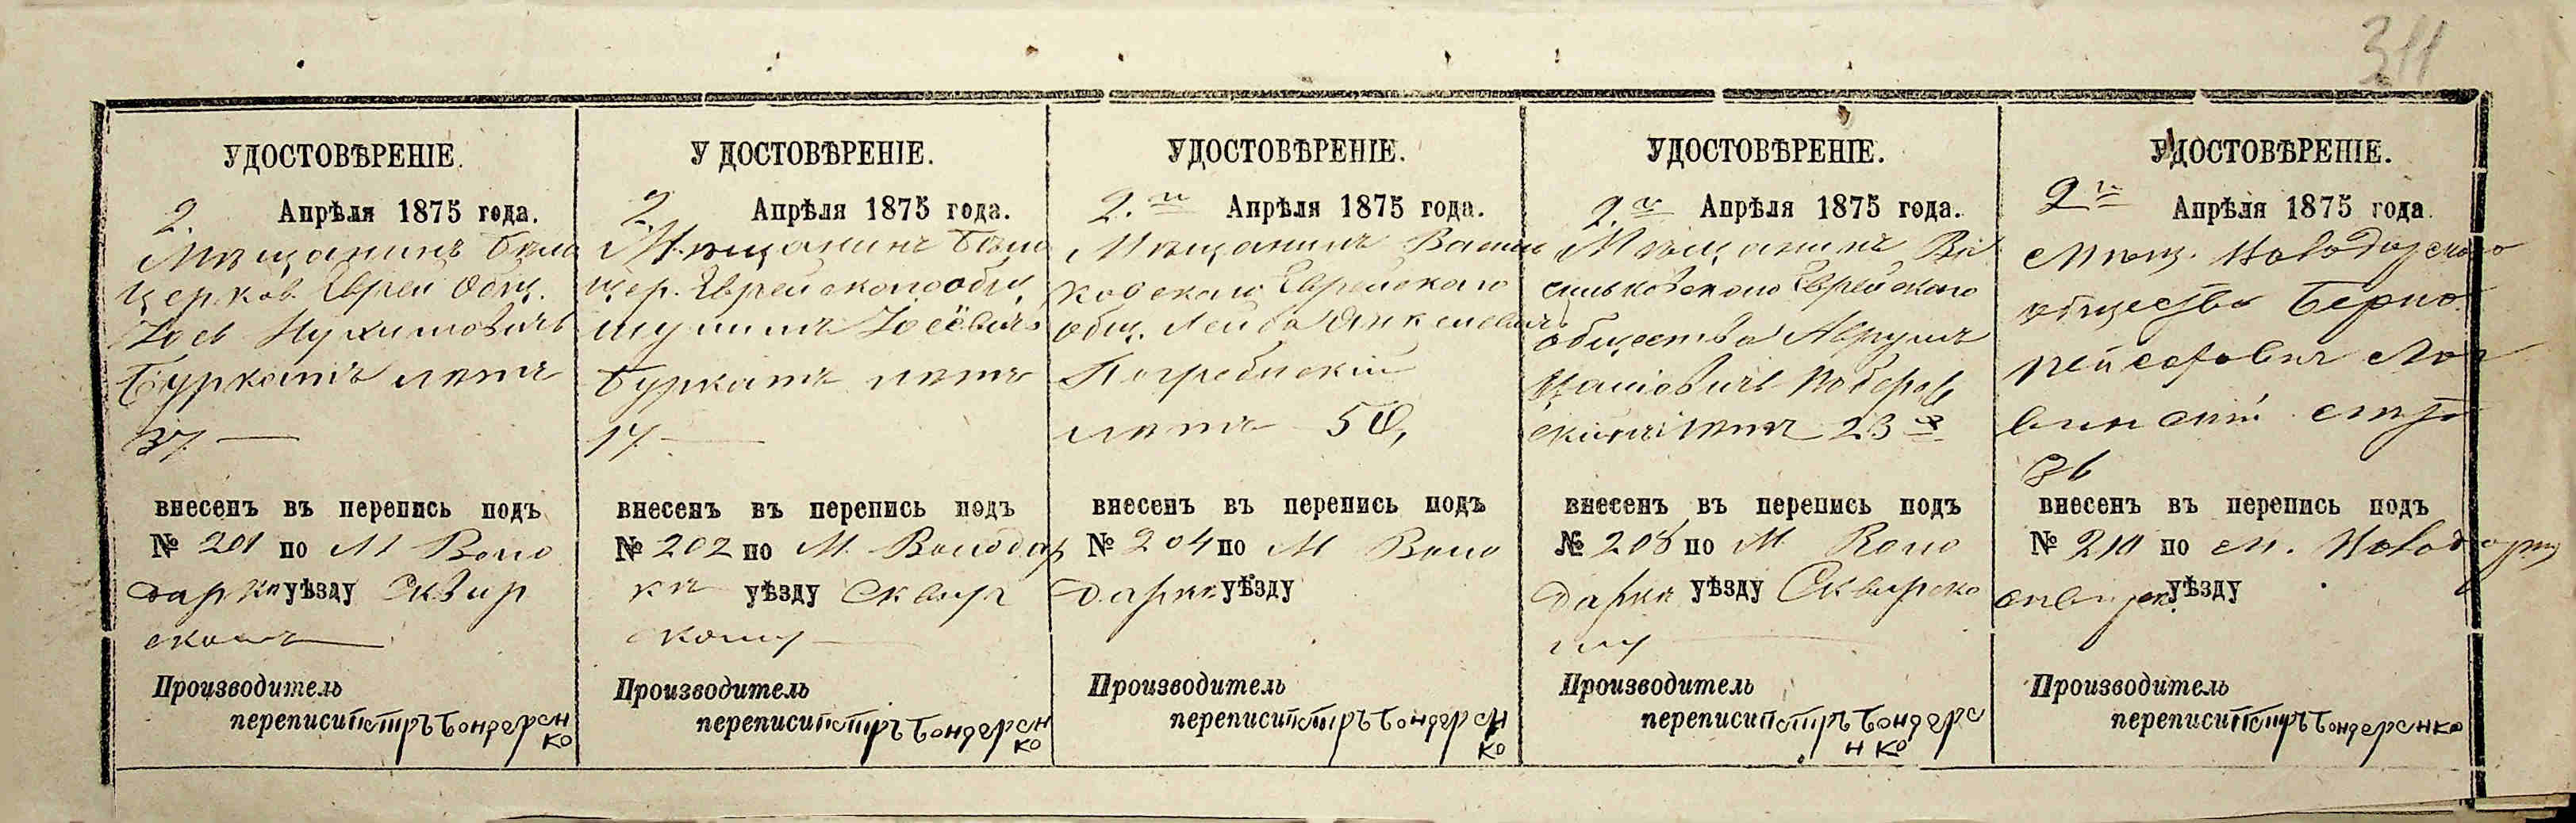 311
УДОСТОВѢРЕНІЕ.
2. Апрѣля 1875 года.
Мѣщанинъ Бѣло
церков. Еврей Общ.
Иось Нухимовичъ
Буркатъ лѣтъ
37 —
внесенъ въ перепись подъ
№ 201 по М Воло
даркѣ уѣзду Сквир
скомъ
Производитель
переписи Петръ Бондарен
ко
У ДОСТОВѢРЕНІЕ.
2. Апрѣля 1875 года.
Мѣщанинъ Бѣло
цер. Еврейского общ
Шулимъ Иосёвичъ
Буркатъ лѣтъ
17 —
внесенъ въ перепись подъ
№ 202 по М. Володар
кѣ уѣзду Сквир
скому
Производитель
переписи Петръ Бондарен
ко
УДОСТОВѢРЕНІЕ.
2.го Апрѣля 1875 года.
Мѣщанинъ Василь
ковского Еврейского
общ. Лейба Янкелевичъ
Погребискій
лѣтъ 50,
внесенъ въ перепись подъ
№ 204 по М Воло
даркѣ уѣзду
Производитель
переписи Петръ Бондарен
ко
УДОСТОВѢРЕНІЕ.
2.го Апрѣля 1875 года.
Мѣщанинъ Ва
сильковского Еврейского
общества Аврумъ
лѣтъ 23
внесенъ въ перепись подъ
№ 208 по М Воло
даркѣ уѣзду Сквирско
му
Производитель
переписи Петръ Бондаре
нко
УДОСТОВѢРЕНІЕ.
2го Апрѣля 1875 года.
Мѣщ. Володарского
общества Берко
36
внесенъ въ перепись подъ
№ 210 по м. Володарки
сквирск. уѣзду
Производитель
переписи Петръ Бондаренко